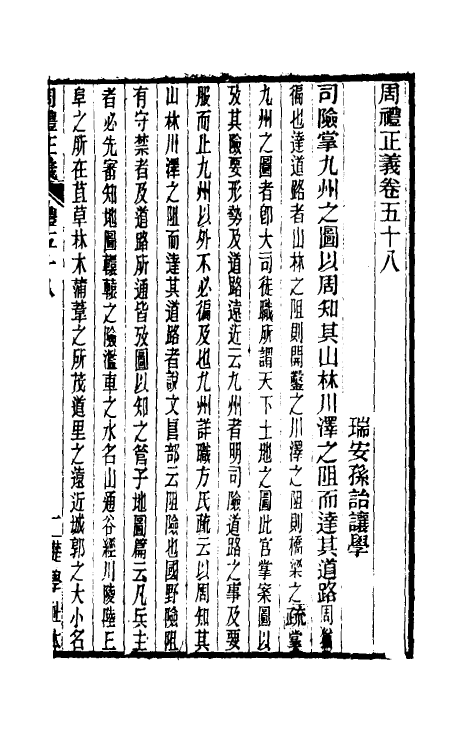 周禮正義卷五十八
瑞安孫詒讓學
司險掌九州之圖以周知其山林川澤之阻而達其道路周猶
徧也達道路者山林之阻則開鑿之川澤之阻則橋梁之疏掌
九州之圖者卽大司徒職所謂天下土地之圖此官掌案圖以
攷其險要形勢及道路遠近云九州者明司險道路之事及要
服而止九州以外不必徧及也九州詳職方氏疏云以周知其
山林川澤之阻而達其道路者說文𨸏部云阻險也國野險阻
有守禁者及道路所通皆攷圖以知之管子地圖篇云凡兵主
者必先審知地圖轘轅之險濫車之水名山通谷經川陵陸丘
阜之所在苴草林木蒲葦之所茂道里之遠近城郭之大小名
周禮正義 禮五十八 一 楚學社本